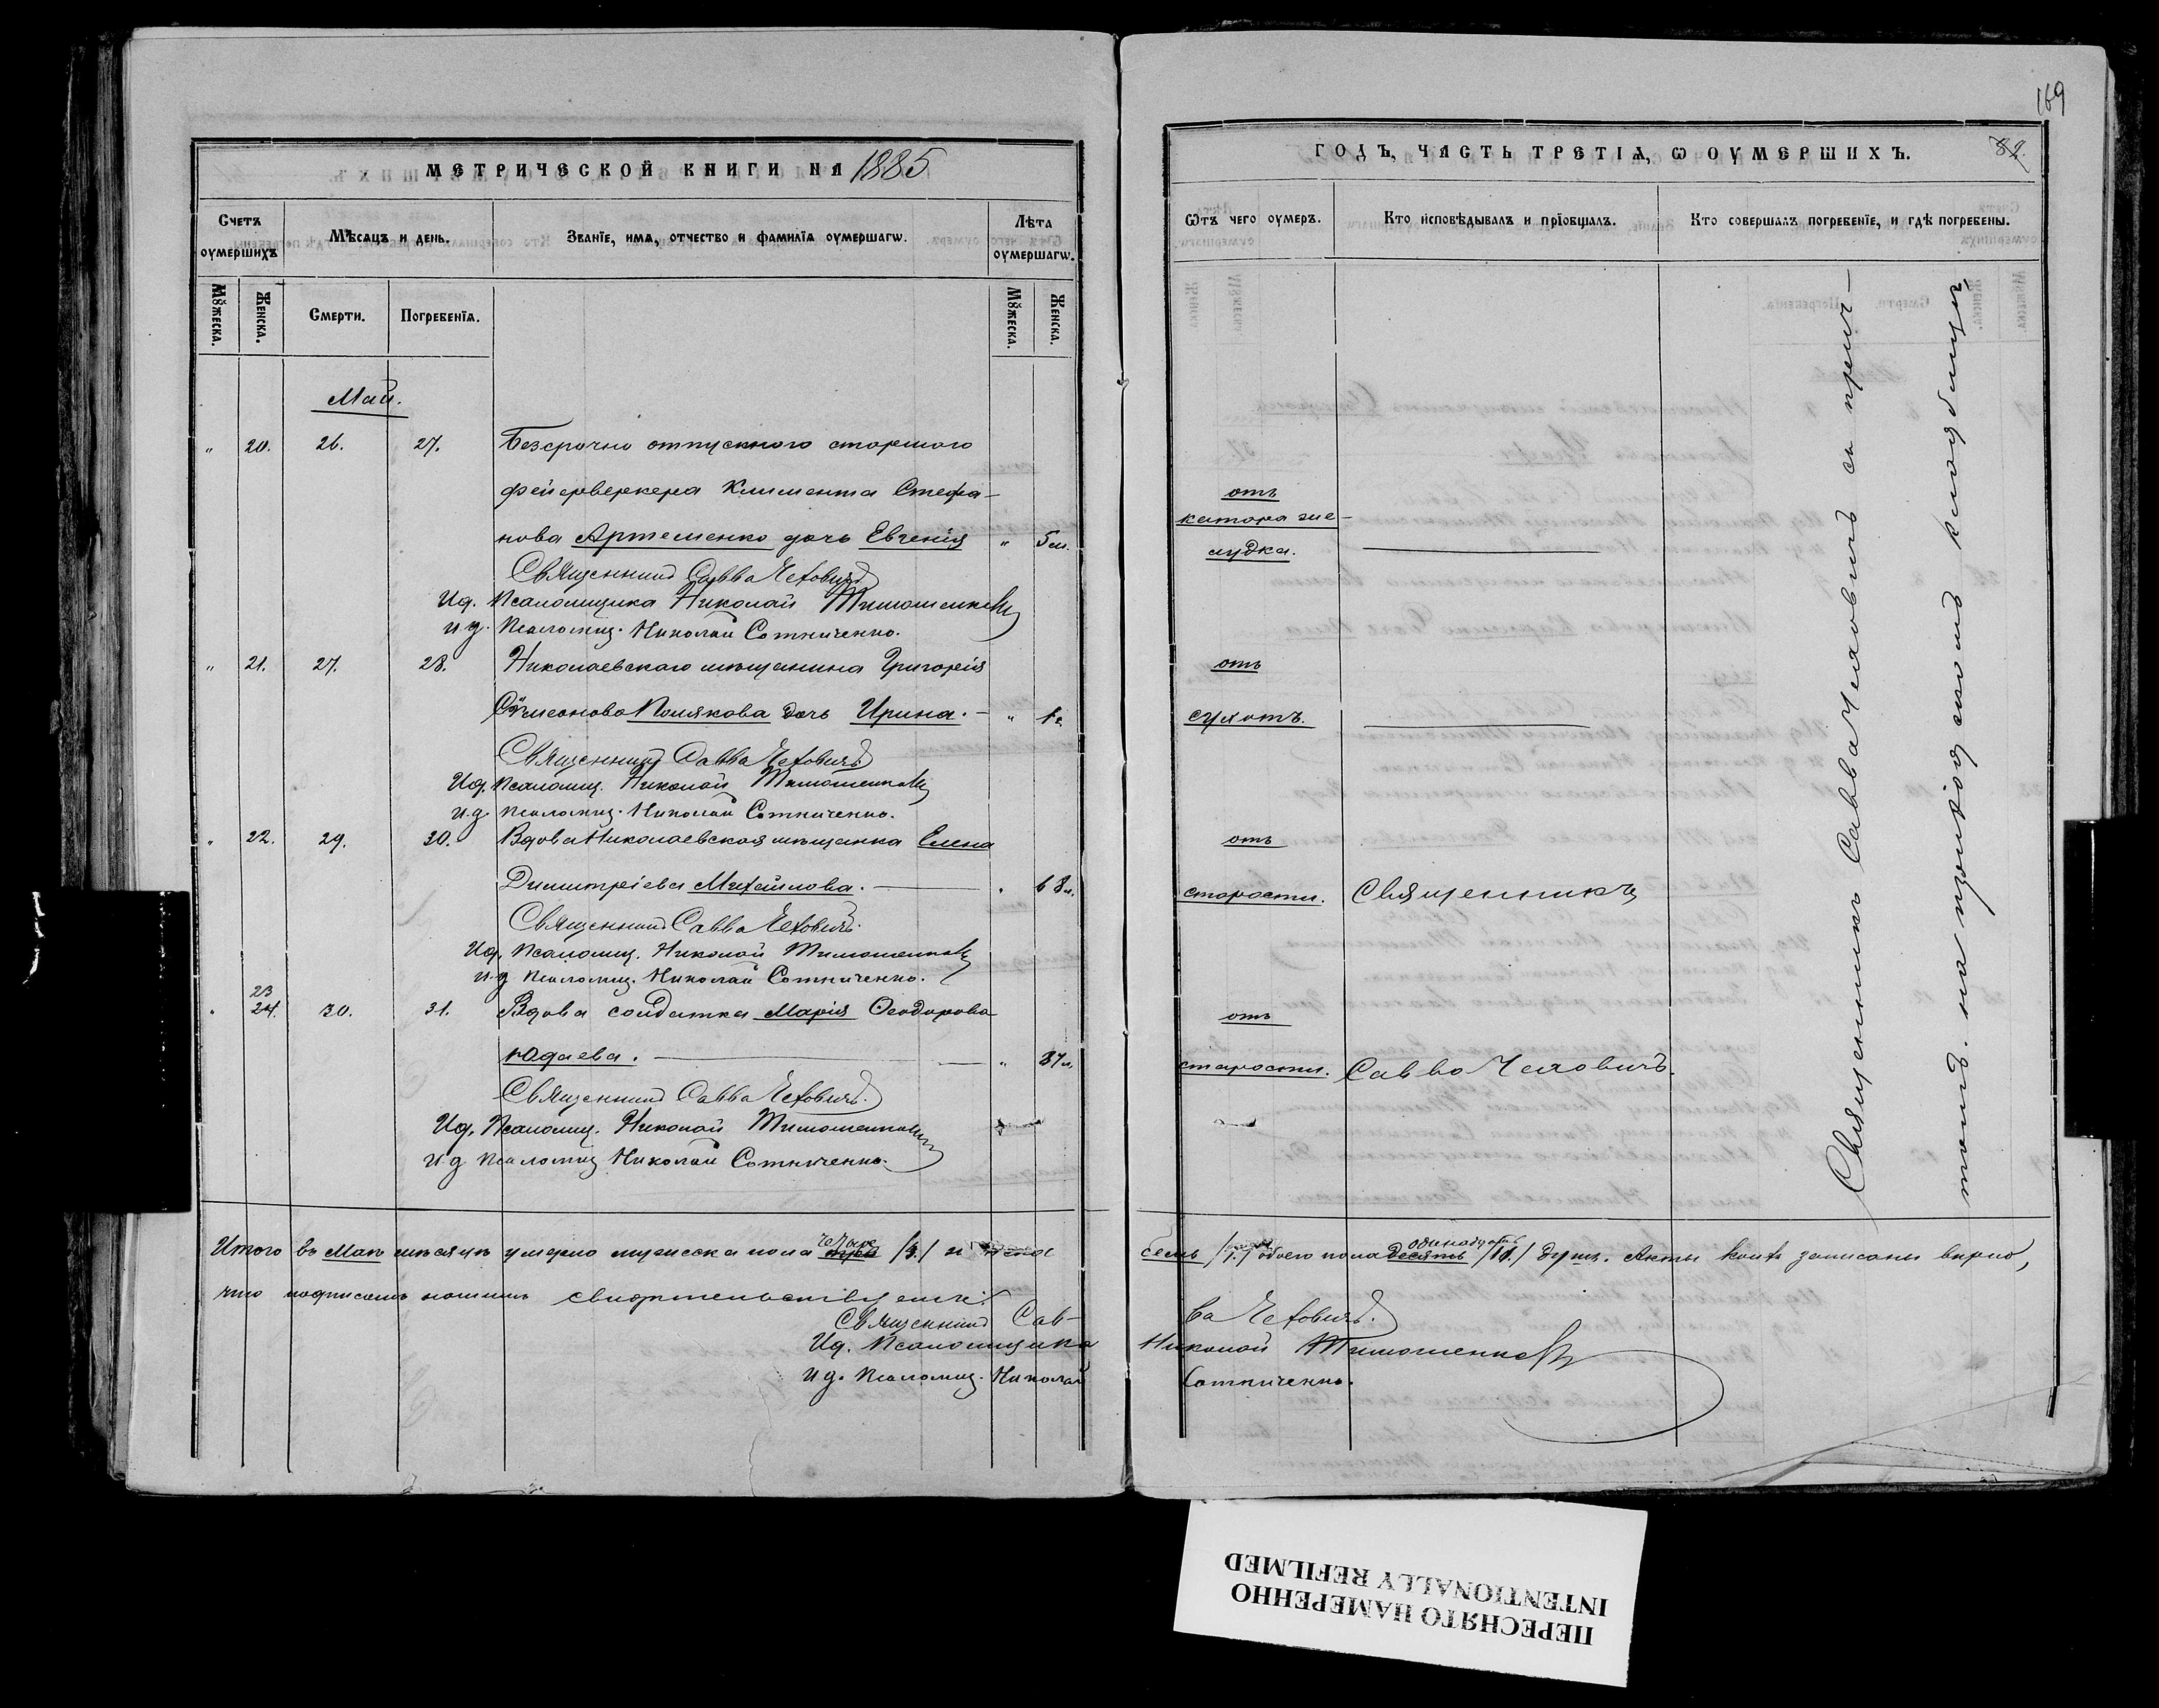 МЕТРИЧЕСКОЙ КНИГИ НА 1885
Счетъ оумершихъ
Мѣсяцъ и день.
Званїе, имя, отчество и фамилїя оумершагѡ.
Лѣта оумершагѡ.
Мꙋжеска.
Женска.
Смерти.
Погребенїя.
Мꙋжеска.
Женска.
Май.
" 20. 26. 27. Безсрочно отпускного старшаго
фейерверкера Климента Стефа-
нова Артеменко дочь Евгенія " 5 м.
Священникъ Савва Чеховичъ
И.д. Псаломщика Николай Тимошевскій
и.д. псаломщ. Николай Сотниченко.
" 21. 27. 28. Николаевскаго мѣщанина Григорія
Симеонова Полякова дочь Ирина. - " 1 г.
Священникъ Савва Чеховичъ
И.д. Псаломщ. Николай
и.д. псаломщ. Николай Сотниченко.
" 22. 29. 30. Вдова Николаевская мѣщанка Елена
Димитріева Михайлова. " 68 л.
Священникъ Савва Чеховичъ.
И.д. Псаломщ. Николай
и.д. псаломщ. Николай Сотниченко.
23
" 24. 30. 31. Вдова солдатка Марія Ѳеодорова
Юдаева. " 87 л.
Священникъ Савва Чеховичъ.
И.д. Псаломщ. Николай
и.д. псаломщ. Николай Сотниченко.
Итого въ Маѣ мѣсяцѣ умерло мужеска пола четыре три /4./ и женска
что подписомъ нашимъ свидѣтельствуемъ:
Священникъ Сав-
И.д. Псаломщика
и.д. псаломщ. Николай
169
ГОДЪ, ЧАСТЬ ТРЕТІЯ, Ѡ ОУМЕРШИХЪ.
82.
Ѿтъ чего оумеръ.
Кто исповѣдывалъ и прїобщалъ.
Кто совершалъ погребенїе, и гдѣ погребены.
отъ
катора же-
лудка.
отъ
сухотъ.
отъ
старости. Священникъ
отъ
старости. Савва Чеховичъ.
Священникъ Савва Чеховичъ съ прич-
томъ. на приходскомъ кладбищѣ
семь /7./ обоего пола одинадцать десять /11./ душъ. Акты коихъ записаны вѣрно,
ва Чеховичъ.
Николай
Сотниченко.
ПЕРЕСНЯТО НАМЕРЕННО
INTENTIONALLY REFILMED